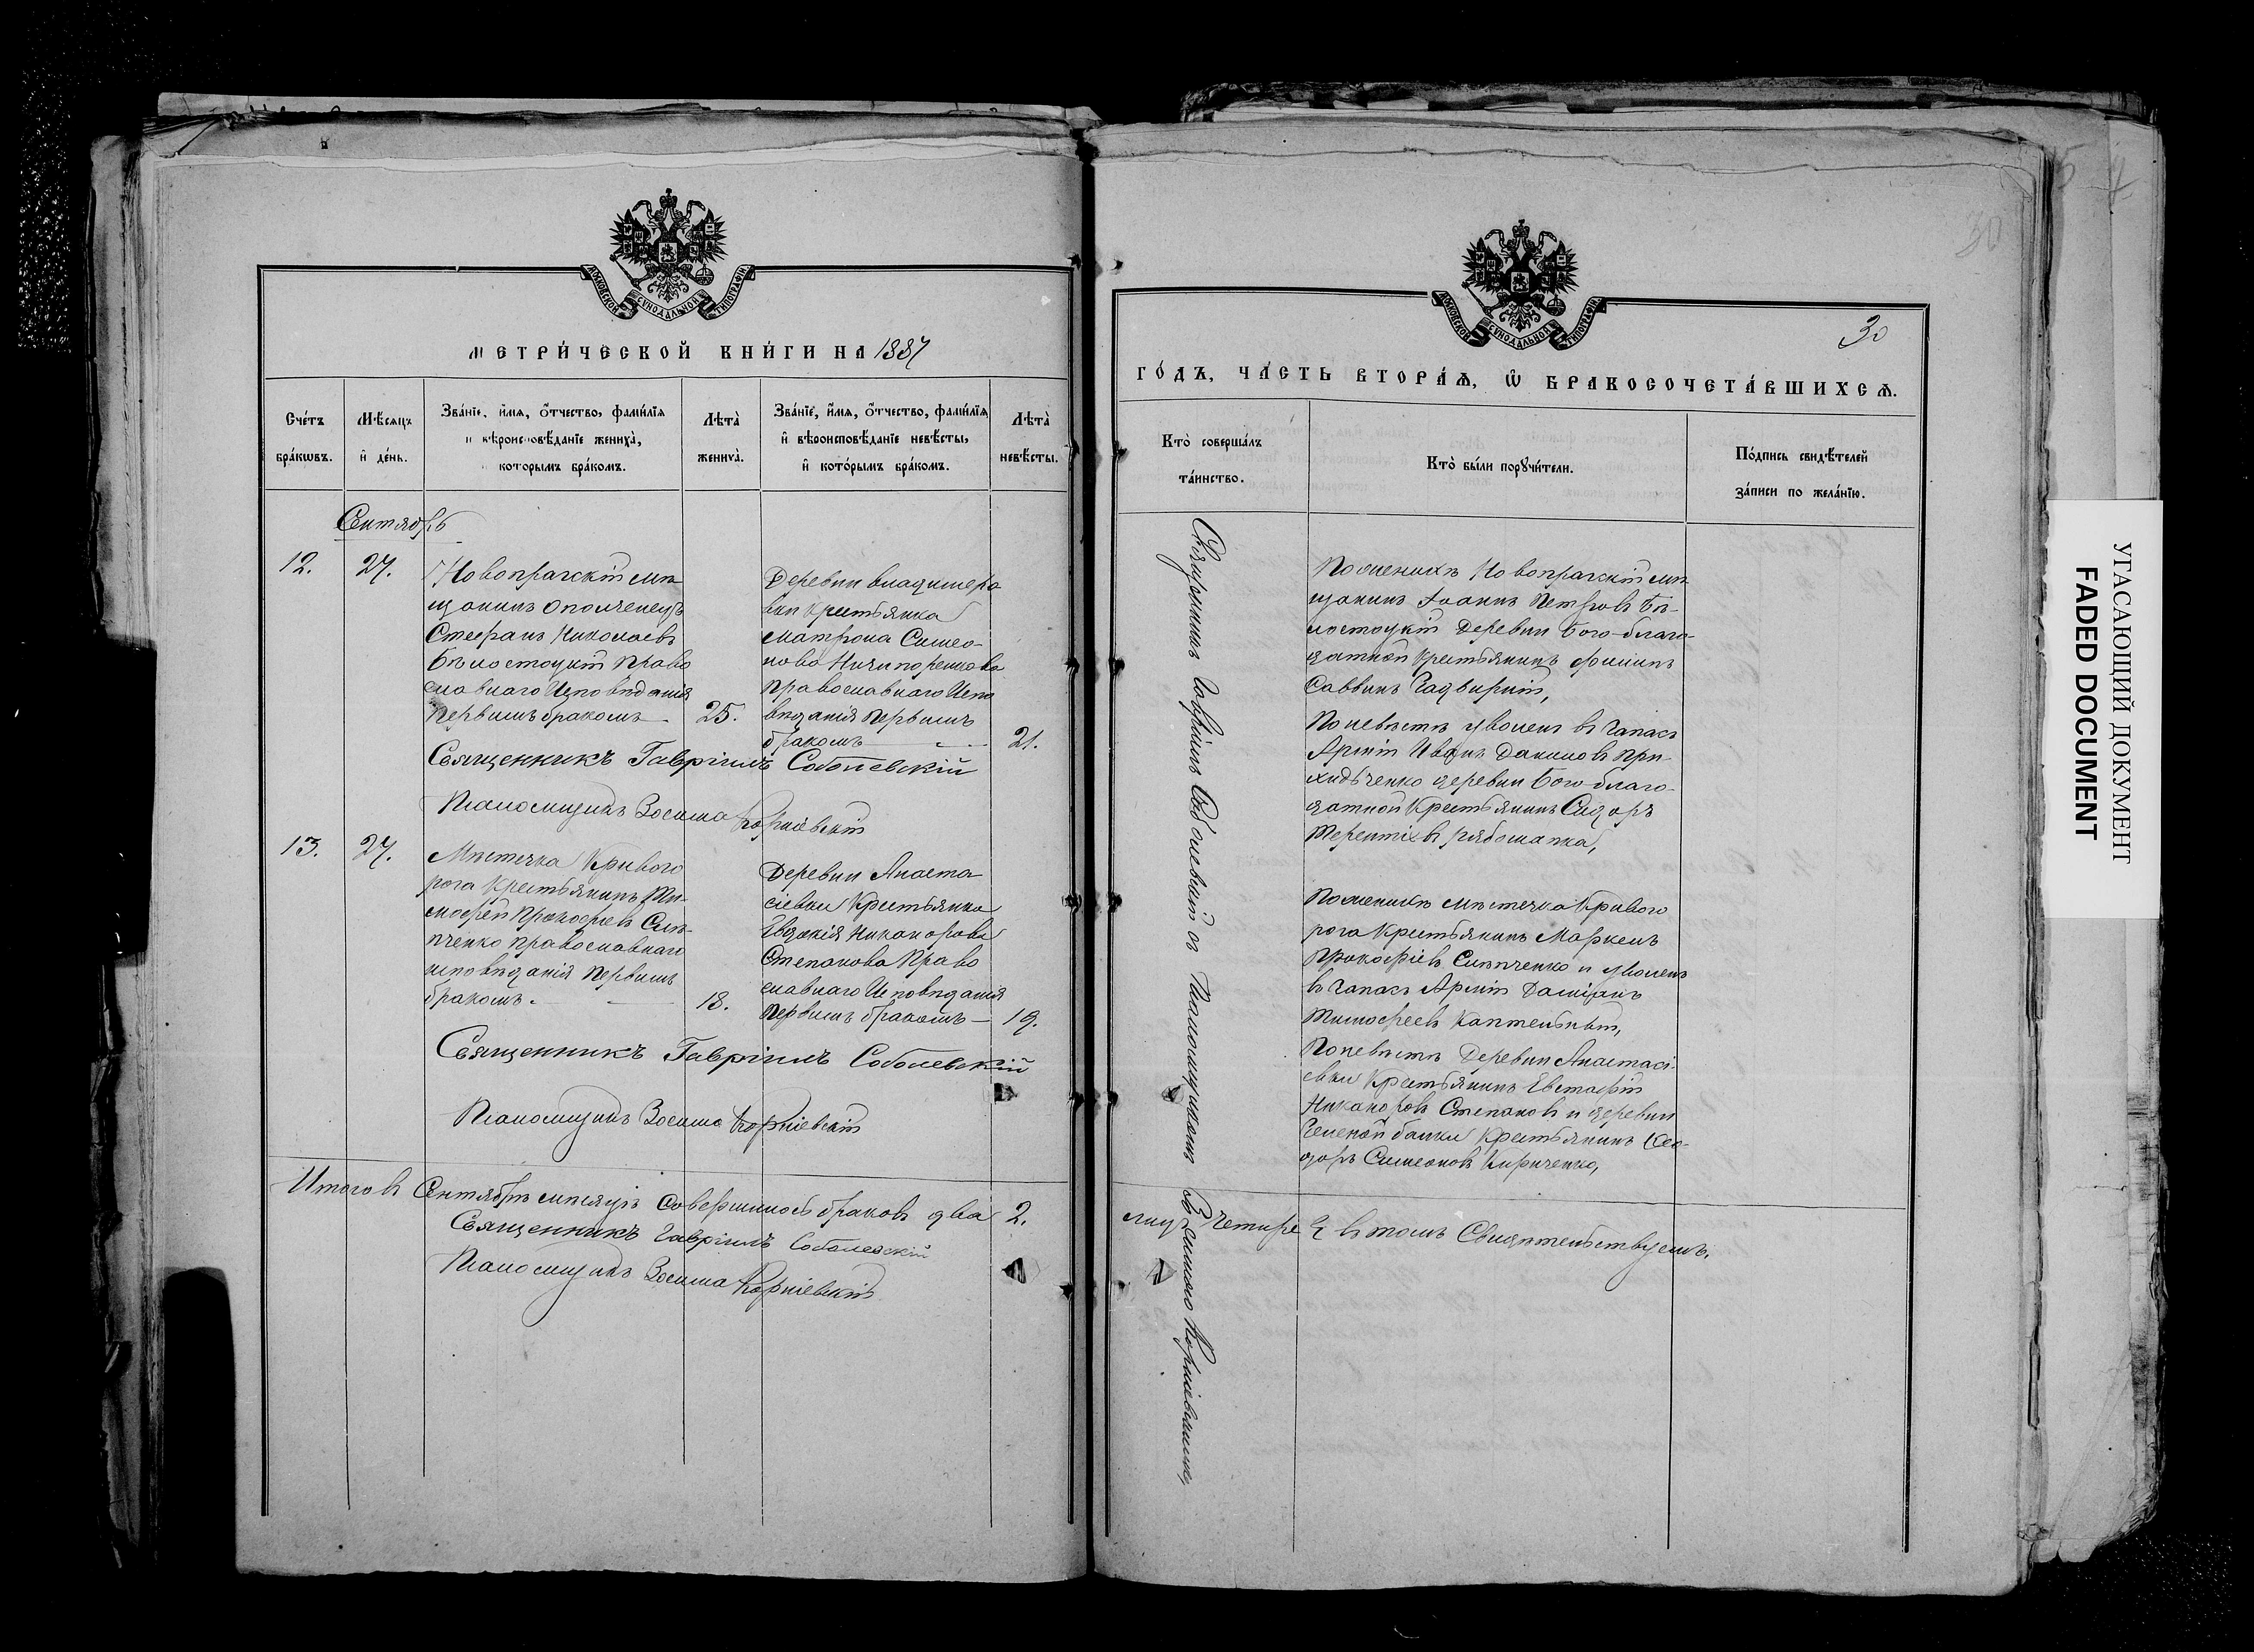 МОСКОВСКОЙ СѴНОДАЛЬНОЙ ТИПОГРАФІИ
МЕТРИ́ЧЕСКОЙ КНИ́ГИ НА 1887
Сче́тъ бра́кѡвъ.
Мѣ́сяцъ и҆ де́нь.
Зва́нїе, и҆́мя, ѻ҆́тчество, фами́лїя
и вѣроисповѣ́данїе жениха̀,
которымъ бра́комъ.
Лѣта̀ жениха̀.
Зва́нїе, и҆́мя, ѻ҆́тчество, фами́лїя
и҆ вѣроисповѣ́данїе невѣ́сты,
и҆ кото́рымъ бра́комъ.
Лѣта̀ невѣ́сты.
Сентябрь
12.
27.
Новопражскій мѣ
щанинъ ополченецъ
Стефанъ Николаевъ
Бѣлостоцкій право
славнаго Исповѣданія
первымъ бракомъ
25.
Деревни Владимеро
вки Крестьянка
Матрона Симео-
нова Ничипоренкова
православнаго Испо
вѣданія первымъ
бракомъ
21.
Священникъ Гавріилъ Соболевскій
Псаломщикъ Зосима Корніевскій
13.
27.
Мѣстечка Кривого
рога Крестьянинъ Ти-
мофей Прокофіевъ Слѣ-
пченко православнаго
исповѣданія первымъ
бракомъ.
18.
Деревни Анаста
сіевки Крестьянка
Евдокія Никанорова
Степанова Право
славнаго Исповѣданія
первымъ бракомъ
19.
Священникъ Гавріилъ Соболевскій
Псаломщикъ Зосима Корніевскій
Итого въ Сентябрѣ мѣсяцѣ совершилось браковъ два 2.
Священникъ Гавріилъ Соболевскій
Псаломщикъ Зосима Корніевскій
30
МОСКОВСКОЙ СѴНОДАЛЬНОЙ ТИПОГРАФІИ
30
ГО́ДЪ, ЧА́СТЬ ВТОРА́Ѧ, Ѽ БРАКОСОЧЕТА́ВШИХСѦ.
Кто̀ соверша́лъ
та́инство.
Кто̀ бы́ли порꙋчи́тели.
По́дпись свидѣ́телей
за́писи по жела́нїю.
Священникъ Гавріилъ Соболевскій съ Псаломщикомъ Зосимою Корніевскимъ,
По женихѣ Новопражскій мѣ
щанинъ Іоаннъ Петровъ Бѣ-
лостоцкій Деревни Бого-благо-
датной Крестьянинъ Филипъ
Саввинъ
По невѣстѣ уволен въ Запасъ
Арміи Иванъ Даниловъ При-
ходьченко деревни Бого-благо-
датной Крестьянинъ Сидоръ
Терентіевъ Рябошапка,
По женихѣ мѣстечка Кривого
рога Крестьянинъ Маркелъ
Прокофіевъ Слѣпченко и уволенъ
въ Запасъ Арміи Даміанъ
Тимофеевъ
По невѣстѣ Деревни Анастасі-
евки Крестьянинъ Евстафій
Никаноровъ Степановъ и деревни
Зеленой балки Крестьянинъ
Симеоновъ Кириченко,
лицъ Четыре въ томъ Свидѣтельствуемъ.
УГАСАЮЩИЙ ДОКУМЕНТ
FADED DOCUMENT